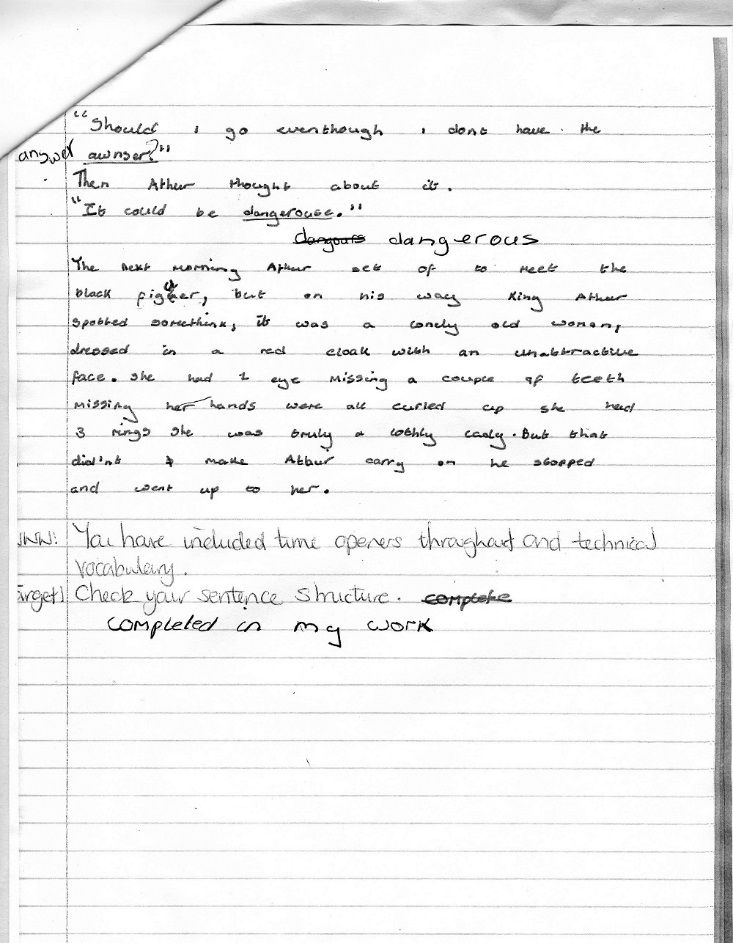 "Should i go eventhough i dont have the
answer awnser?"
Then Athur thought about it.
"It could be dangerouse."
dangours dangerous
The next morning Athur set of to meet the
black figher, but on his way King Athur
spotted somethink, it was a lonely old women,
dressed in a red cloak with an unattractive
face. she had 1 eye missing a couple of teeth
missing her hands were all curled up she had
3 rings she was truly a lothly lady. But that
did'nt make Athur carry on he stopped
and went up to her.
WWW: You have included time openers throughout and technical
vocabulary.
Target) Check your sentence structure. complete
completed in my work